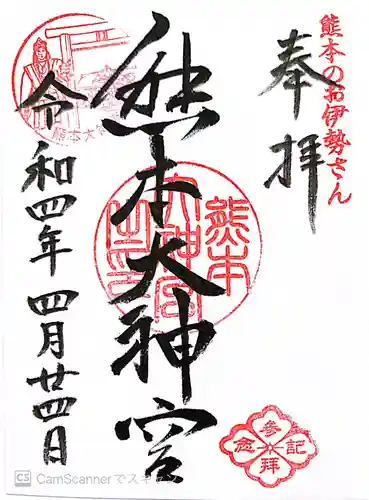 熊本のお伊勢さん
奉拝
熊本大神宮
熊本
大神宮
之印
参拝記念
令和四年四月廿四日
熊本大
CS CamScannerでスキ